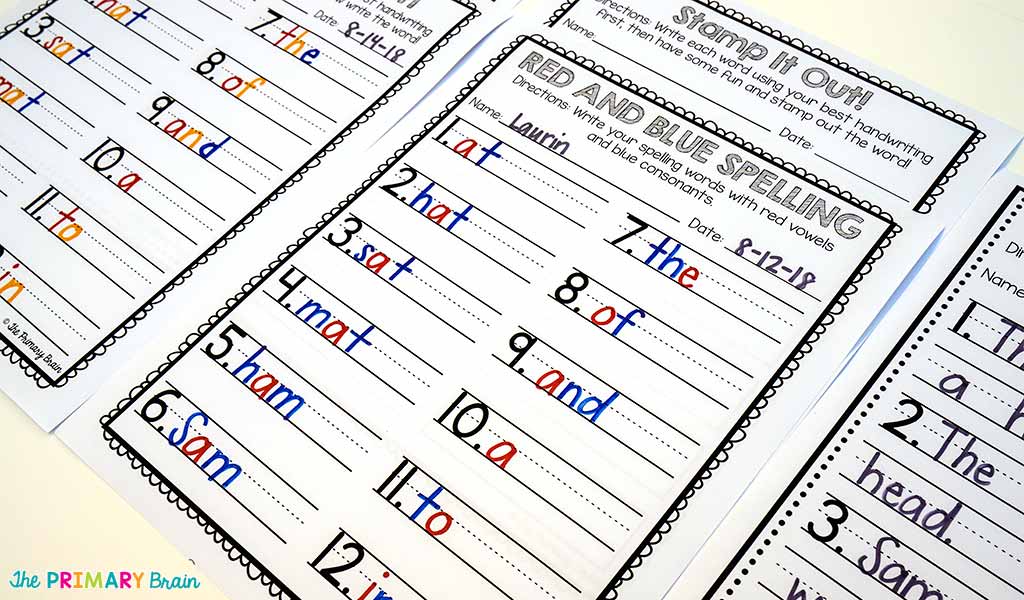 nat
3. sat
mat
7. the
8. of
9. and
10. a
11. to
in
handwriting
write the word!
Date: 8-14-18
© The Primary Brain
Stamp It Out!
Directions: Write each word using your best handwriting
first, then have some fun and stamp out the word!
Name:
Date:
RED AND BLUE SPELLING
Directions: Write your spelling words with red vowels
and blue consonants.
Name: Laurin
Date: 8-12-18
1. at
2. hat
3. sat
4. mat
5. ham
6. Sam
7. the
8. of
9. and
10. a
11. to
12. in
Name
1. Th
a h
2. The
head.
3. Sam
The PRIMARY Brain